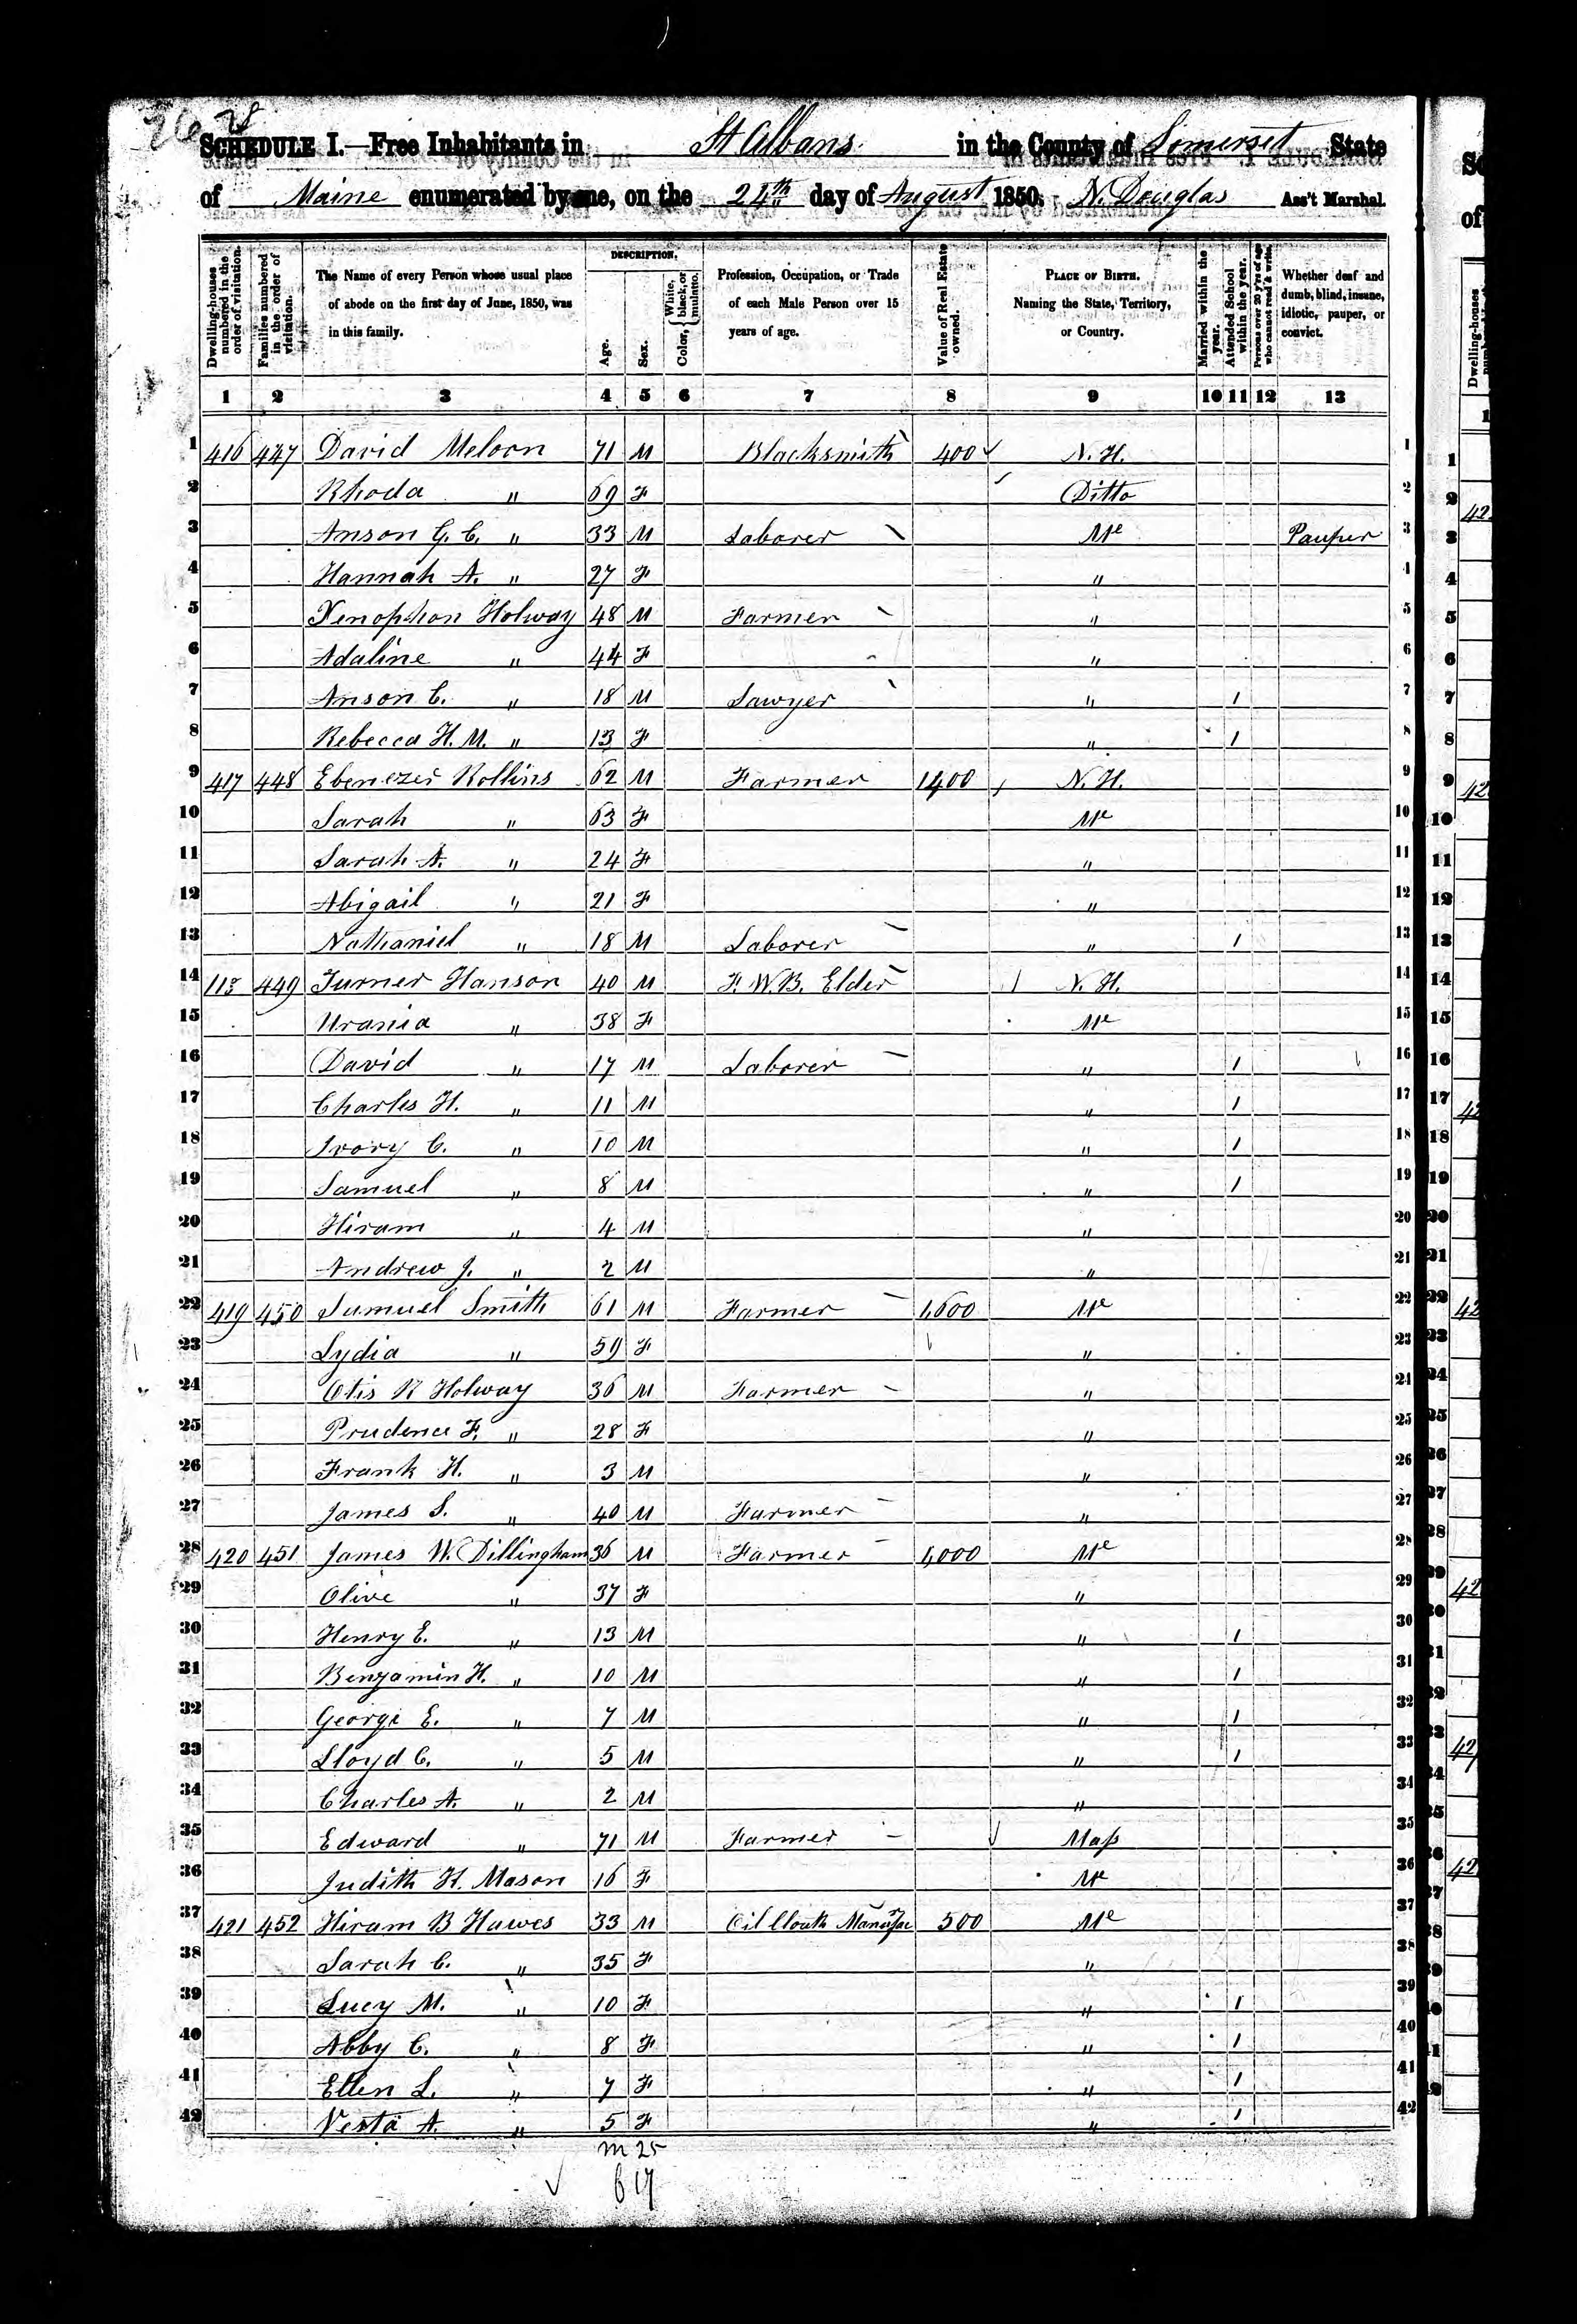 26 28
SCHEDULE I.—Free Inhabitants in St Albans in the County of Somerset State
of Maine enumerated by me, on the 24th day of August 1850. N. Douglas Ass't Marshal.
Dwelling-houses numbered in the order of visitation.
Families numbered in the order of visitation.
The Name of every Person whose usual place of abode on the first day of June, 1850, was in this family.
DESCRIPTION.
Age.
Sex.
Color, { White, black, or mulatto.
Profession, Occupation, or Trade of each Male Person over 15 years of age.
Value of Real Estate owned.
PLACE OF BIRTH. Naming the State, Territory, or Country.
Married within the year.
Attended School within the year.
Persons over 20 y'rs of age who cannot read & write.
Whether deaf and dumb, blind, insane, idiotic, pauper, or convict.
1 2 3 4 5 6 7 8 9 10 11 12 13
1 416 447 David Meloon 71 M Blacksmith 400 N.H. 1
2 Rhoda " 69 F Ditto 2
3 Anson G. C. " 33 M Laborer Me Pauper 3
4 Hannah A. " 27 F " 4
5 Xenophon Holway 48 M Farmer " 5
6 Adaline " 44 F " 6
7 Anson C. " 18 M Sawyer " 1 7
8 Rebecca H. M. " 13 F " 1 8
9 417 448 Ebenezer Rollins 62 M Farmer 1400 N.H. 9
10 Sarah " 63 F Me 10
11 Sarah A. " 24 F " 11
12 Abigail " 21 F " 12
13 Nathaniel " 18 M Laborer " 1 13
14 113 449 Turner Hanson 40 M F.W.B. Elder N.H. 14
15 Urania " 38 F Me 15
16 David " 17 M Laborer " 1 16
17 Charles H. " 11 M " 1 17
18 Ivory C. " 10 M " 1 18
19 Samuel " 8 M " 1 19
20 Hiram " 4 M " 20
21 Andrew J. " 2 M " 21
22 419 450 Samuel Smith 61 M Farmer 1,600 Me 22
23 Lydia " 59 F " 23
24 Otis R Holway 36 M Farmer " 24
25 Prudence F. " 28 F " 25
26 Frank H. " 3 M " 26
27 James S. " 40 M Farmer " 27
28 420 451 James W. Dillingham 36 M Farmer 1,000 Me 28
29 Olive " 37 F " 29
30 Henry E. " 13 M " 1 30
31 Benjamin H. " 10 M " 1 31
32 George E. " 7 M " 1 32
33 Lloyd C. " 5 M " 1 33
34 Charles A. " 2 M " 34
35 Edward " 71 M Farmer Mass 35
36 Judith H. Mason 16 F Me 36
37 421 452 Hiram B Hawes 33 M Oil Cloth Manufac 500 Me 37
38 Sarah C. " 35 F " 38
39 Lucy M. " 10 F " 1 39
40 Abby C. " 8 F " 1 40
41 Ellen L. " 7 F " 1 41
42 Vesta A. " 5 F " 1 42
m 25
f 17